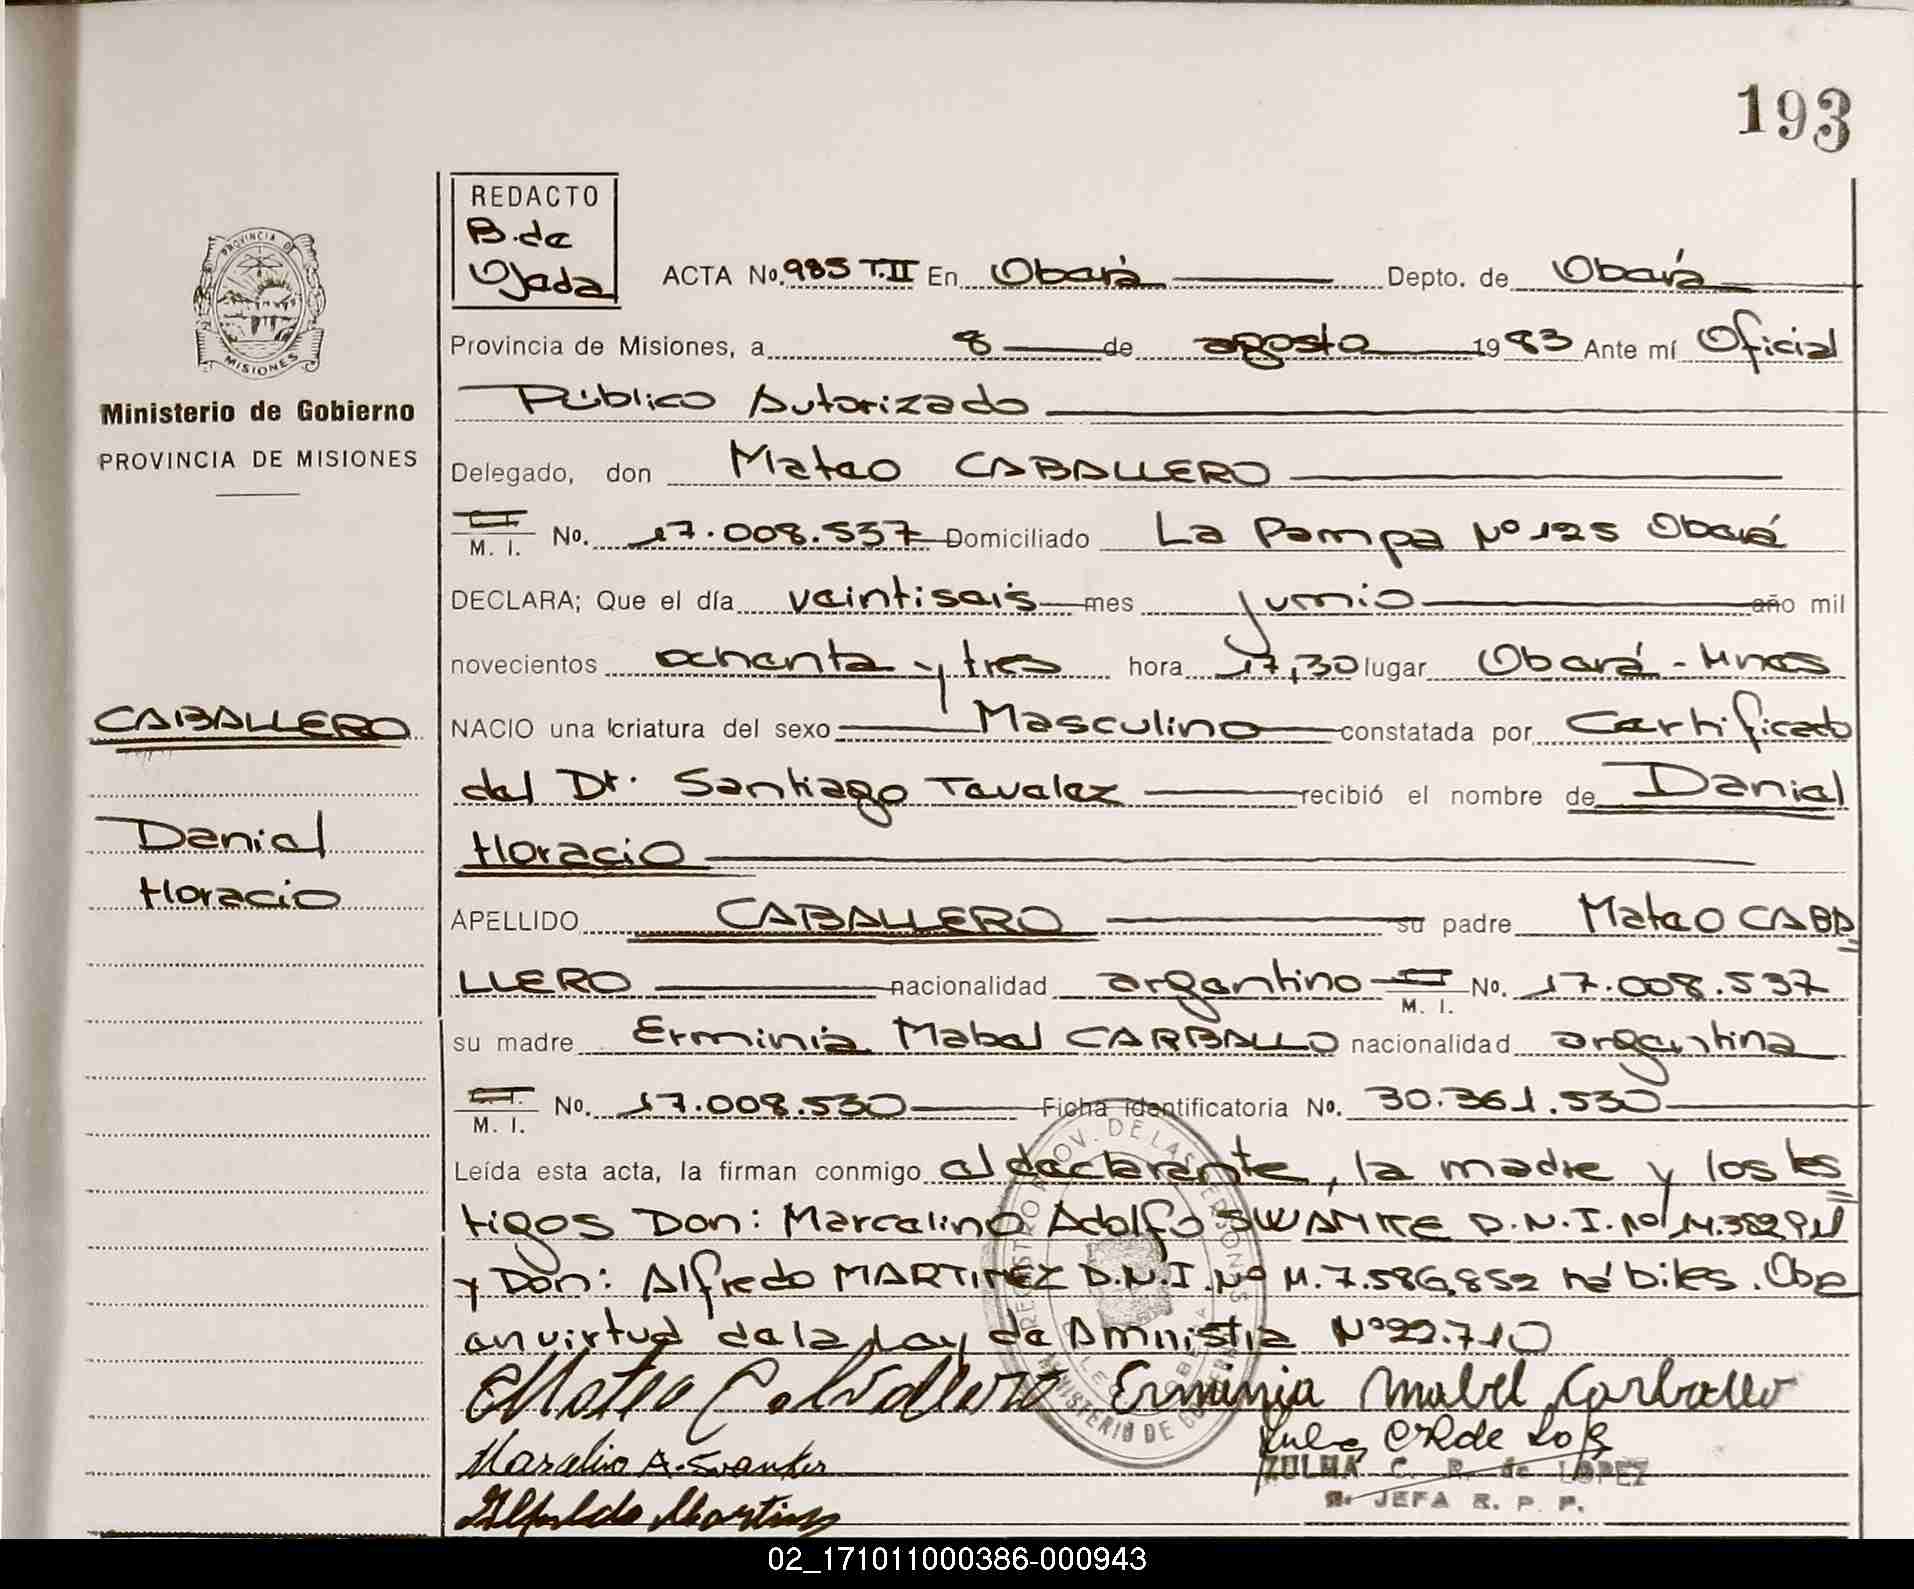 193
REDACTO
B. de
Ojeda
ACTA No. 985 T.II En Oberá Depto. de Oberá
Provincia de Misiones, a 8 de agosto 1983 Ante mí Oficial
Público Autorizado
PROVINCIA DE
MISIONES
Ministerio de Gobierno
PROVINCIA DE MISIONES
Delegado, don Mateo CABALLERO
C.I.
M. I. No. 17.008.537 Domiciliado La Pampa Nº 125 Oberá
DECLARA; Que el día veintiseis mes junio año mil
novecientos ochenta y tres hora 17,30 lugar Oberá - Mnes
CABALLERO
Daniel
Horacio
NACIO una criatura del sexo Masculino constatada por Certificado
del Dr. Santiago Tavalez recibió el nombre de Daniel
Horacio
APELLIDO CABALLERO su padre Mateo CABA
LLERO nacionalidad argentino M. I. No. 17.008.537
su madre Erminia Mabel CARBALLO nacionalidad argentina
C.I.
M. I. No. 17.008.530 Ficha identificatoria No. 30.361.530
Leída esta acta, la firman conmigo el declarante, la madre y los tes
tigos Don: Marcelino Adolfo SWANKE D.N.I. Nº
y Don: Alfredo MARTINEZ D.N.I. Nº M. 7.586.852 hábiles.
en virtud de la Ley de Amnistia Nº 22.710
Mateo Caballero Erminia Mabel Carballo
Marcelino A. Swanke
ZULMA C. R. de LOPEZ
JEFA R. P. P.
Alfredo Martinez
02_171011000386-000943